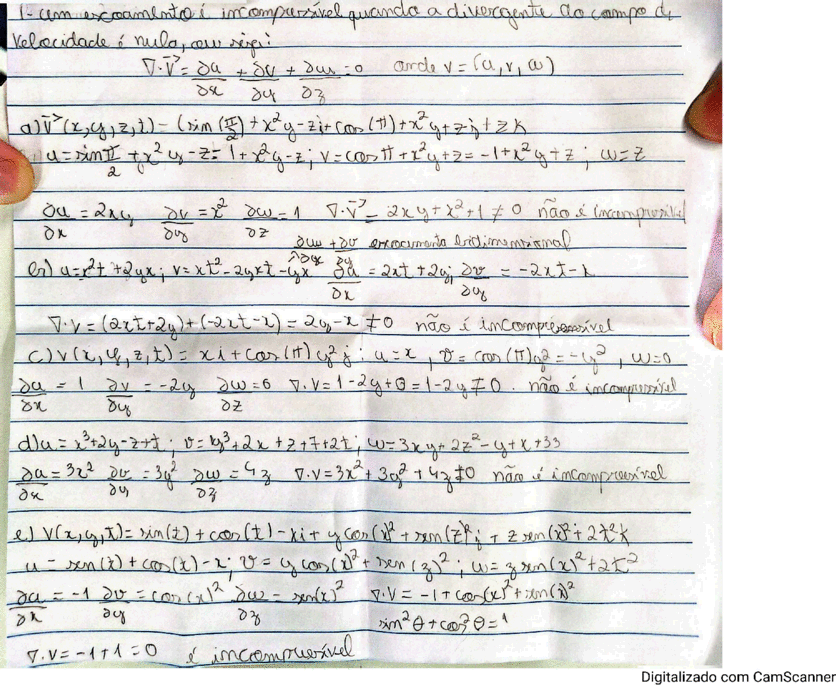 1- um escoamento é incompressível quando a divergente do campo de
velocidade é nulo, ou seja:
∇·V⃗ = ∂u/∂x + ∂v/∂y + ∂w/∂z = 0 onde v = (u, v, w)
a) V⃗(x, y, z, t) = (sin(π/2) + x²y - zi + cos(π) + x²y + zj + zk
u = sin π/2 + x²y - z = 1 + x²y - z; v = cos π + x²y + z = -1 + x²y + z; w = z
∂u/∂x = 2xy ∂v/∂y = x² ∂w/∂z = 1 ∇·V⃗ = 2xy + x² + 1 ≠ 0 não é incompressível
∂u/∂x + ∂v/∂y escoamento bidimensional
b) u = x²t + 2yx; v = xt² - 2yxt - yx ∂u/∂x = 2xt + 2y; ∂v/∂y = -2xt - x
∇·v = (2xt + 2y) + (-2xt - x) = 2y - x ≠ 0 não é incompressível
c) v(x, y, z, t) = xi + cos(π)y²j : u = x, v = cos(π)y² = -y², w = 0
∂u/∂x = 1 ∂v/∂y = -2y ∂w/∂z = 0 ∇·v = 1 - 2y + 0 = 1 - 2y ≠ 0. não é incompressível
d) u = x³ + 2y - z + t; v = y³ + 2x + z + 7 + 2t; w = 3xy + 2z² - y + x + 33
∂u/∂x = 3x² ∂v/∂y = 3y² ∂w/∂z = 4z ∇·v = 3x² + 3y² + 4z ≠ 0 não é incompressível
e) V(x, y, t) = sin(t) + cos(t) - xi + y cos(x)² + sen(z)²j + z sen(x)² + 2t²k
u = sen(t) + cos(t) - x; v = y cos(x)² + sen(z)²; w = z sen(x)² + 2t²
∂u/∂x = -1 ∂v/∂y = cos(x)² ∂w/∂z = sen(x)² ∇·v = -1 + cos(x)² + sen(x)²
sin²θ + cos²θ = 1
∇·v = -1 + 1 = 0 é incompressível
Digitalizado com CamScanner